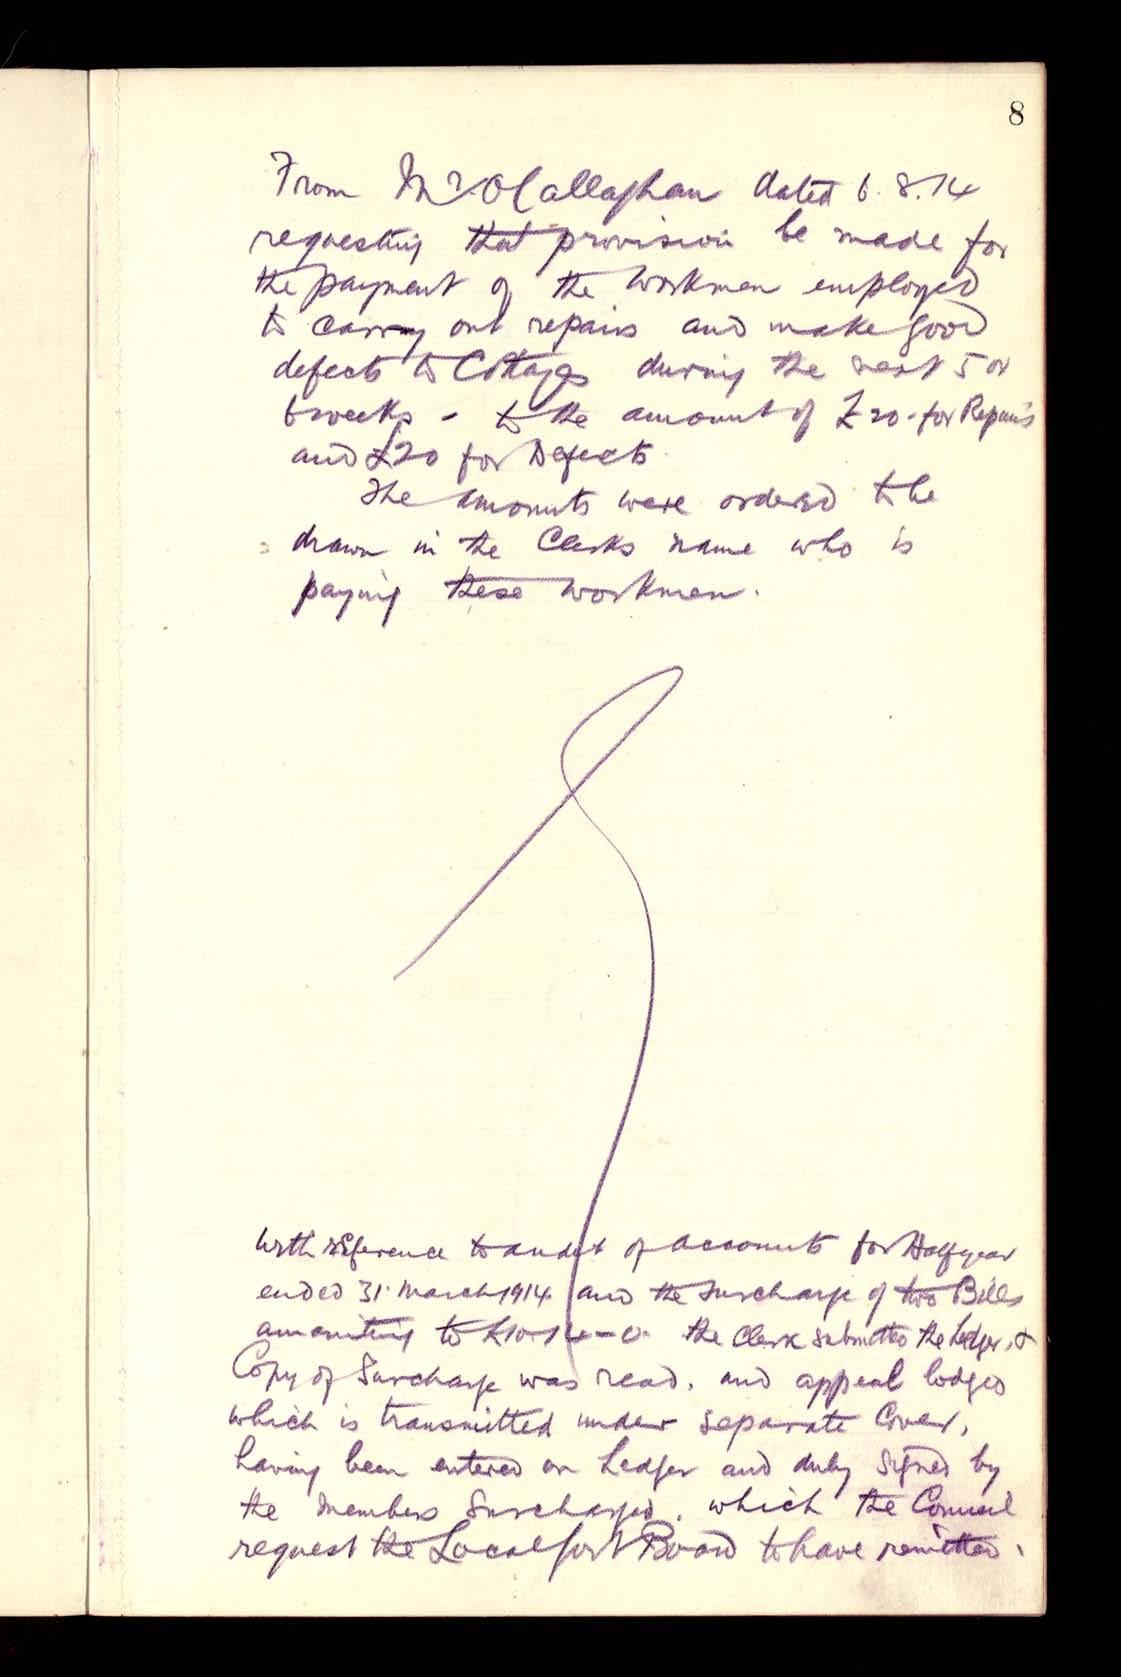 8
From Mr O'Callaghan dated 6.8.14
requesting that provision be made for
the payment of the workmen employed
to carry out repairs and make good
defects to Cottages during the next 5 or
6 weeks - to the amount of £20 - for Repairs
and £20 for Defects
The amounts were ordered to be
drawn in the Clerks name who is
paying these workmen.
With reference to audit of accounts for Half year
ended 31 March 1914 and the surcharge of two Bills
amounting to £10-14-0. the Clerk submitted the Ledger, &
Copy of Surcharge was read, and appeal lodged
which is transmitted under separate Cover,
having been entered on Ledger and duly signed by
the Members Surcharged, which the Council
request the Local Govt Board to have remitted.